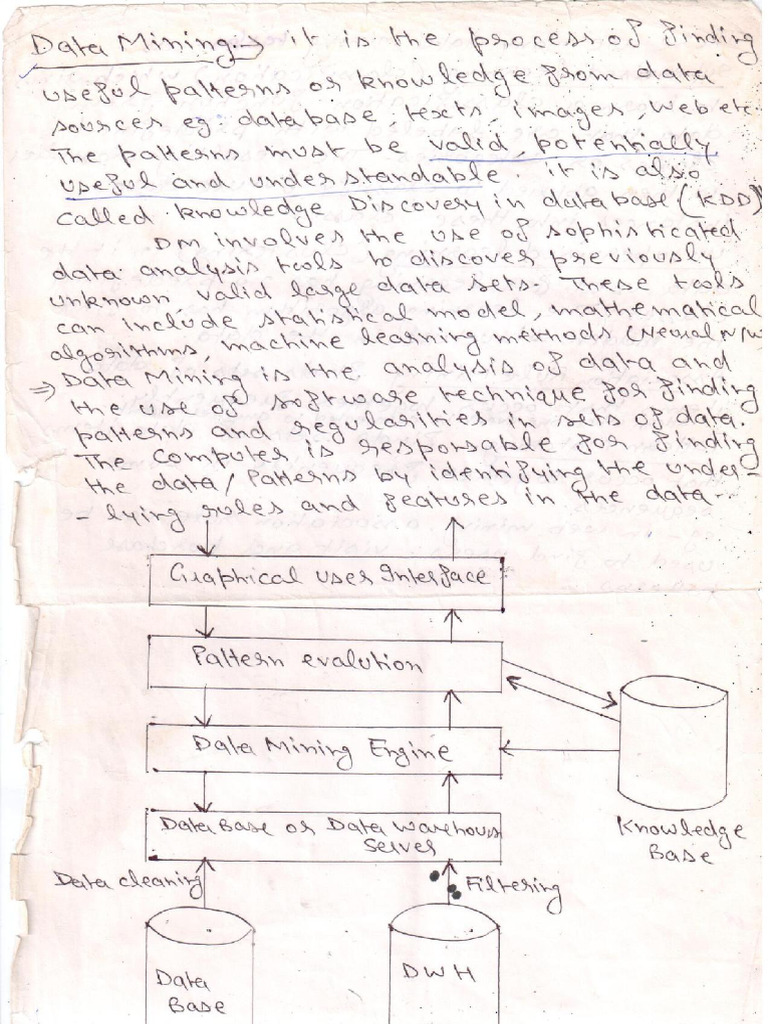 Data Mining → it is the process of finding
useful patterns or knowledge from data
sources eg: database, texts, images, web etc.
The patterns must be valid, potentially
useful and understandable. it is also
called knowledge Discovery in database (KDD)
DM involves the use of sophisticated
data analysis tools to discover previously
unknown valid large data sets. These tools
can include statistical model, mathematical
algorithms, machine learning methods (Neural N/W
⇒ Data Mining is the analysis of data and
the use of software technique for finding
patterns and regularities in sets of data.
The computer is responsable for finding
the data/Patterns by identifying the under-
-lying rules and features in the data--
Graphical user Interface
Pattern evalution
Data Mining Engine
DataBase or Data warehouse
Server
Knowledge
Base
Data cleaning
Filtering
Data
Base
DWH